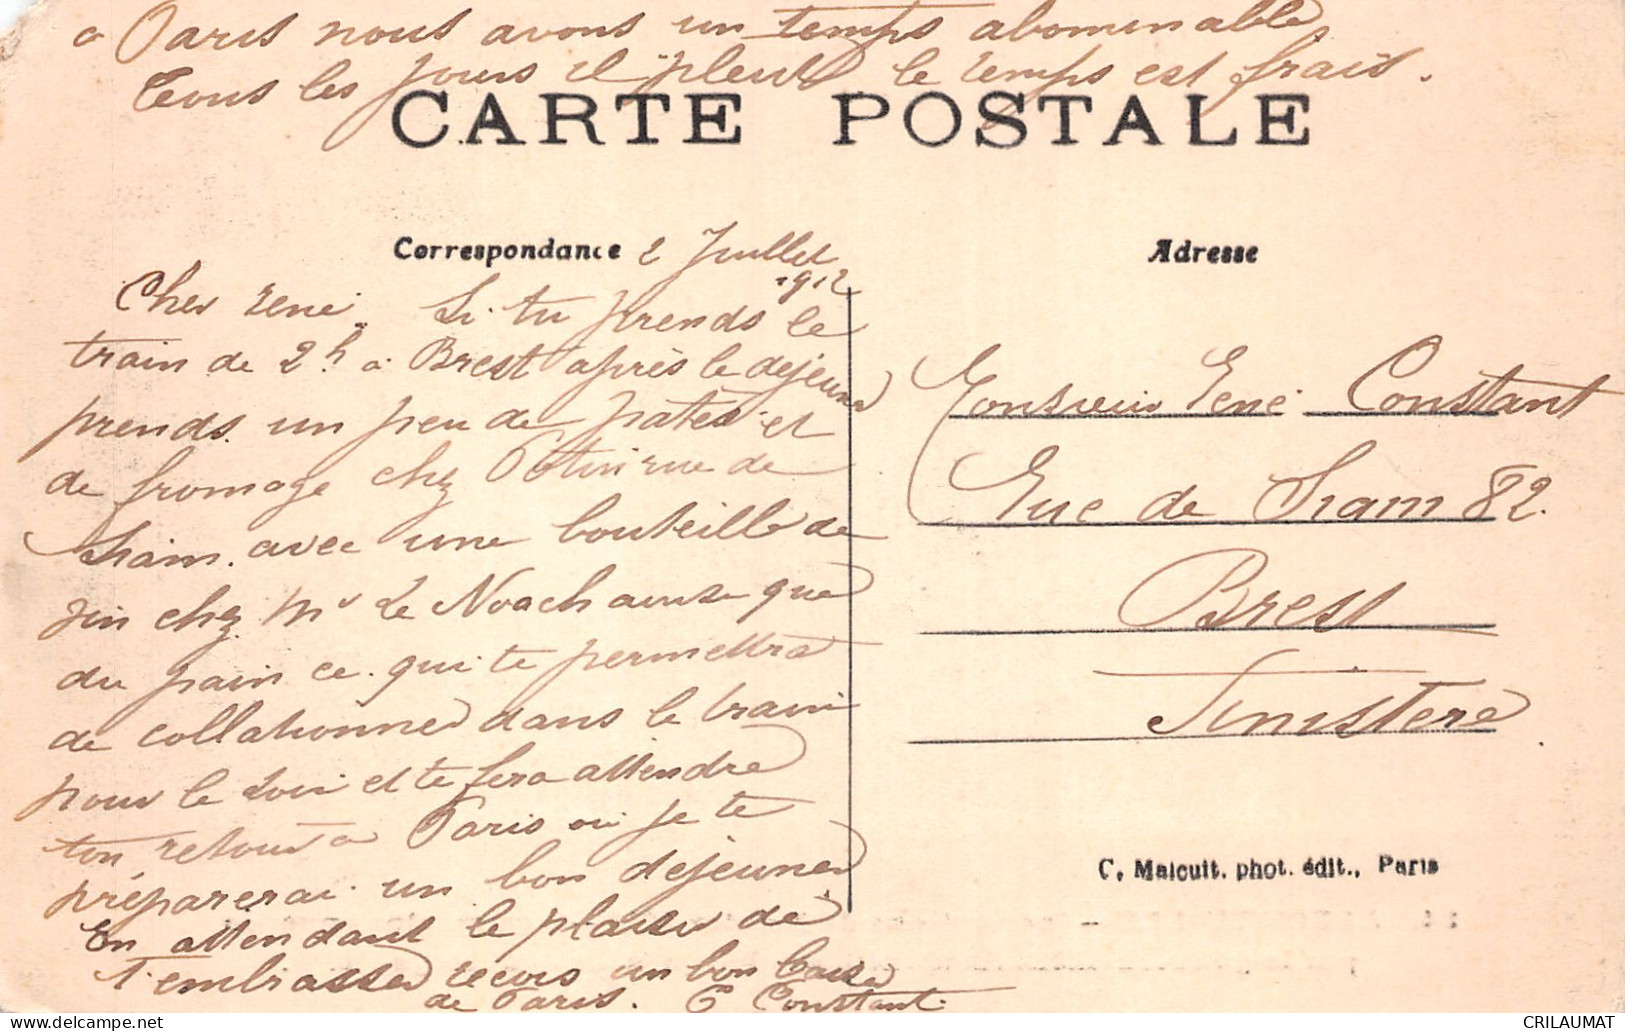 a Paris nous avons un temps abominable
Tous les jours il pleut le temps est frais.
CARTE POSTALE
Correspondance 2 Juillet
1912
Adresse
Cher René. Si tu prends le
train de 2h à Brest après le dejeuner
prends un peu de patés et
de fromage chez Potin rue de
Siam. avec une bouteille de
vin chez Mr Le Noach ainsi que
du pain ce qui te permettra
de collationner dans le train
pour le soir et te fera attendre
ton retour a Paris où je te
préparerai un bon dejeuner
En attendant le plaisir de
t'embrasser recois un bon baiser
de Paris. C Constant
Monsieur René Constant
Rue de Siam 82.
Brest
Finistere
C. Malcuit. phot. édit., Paris
CRILAUMAT